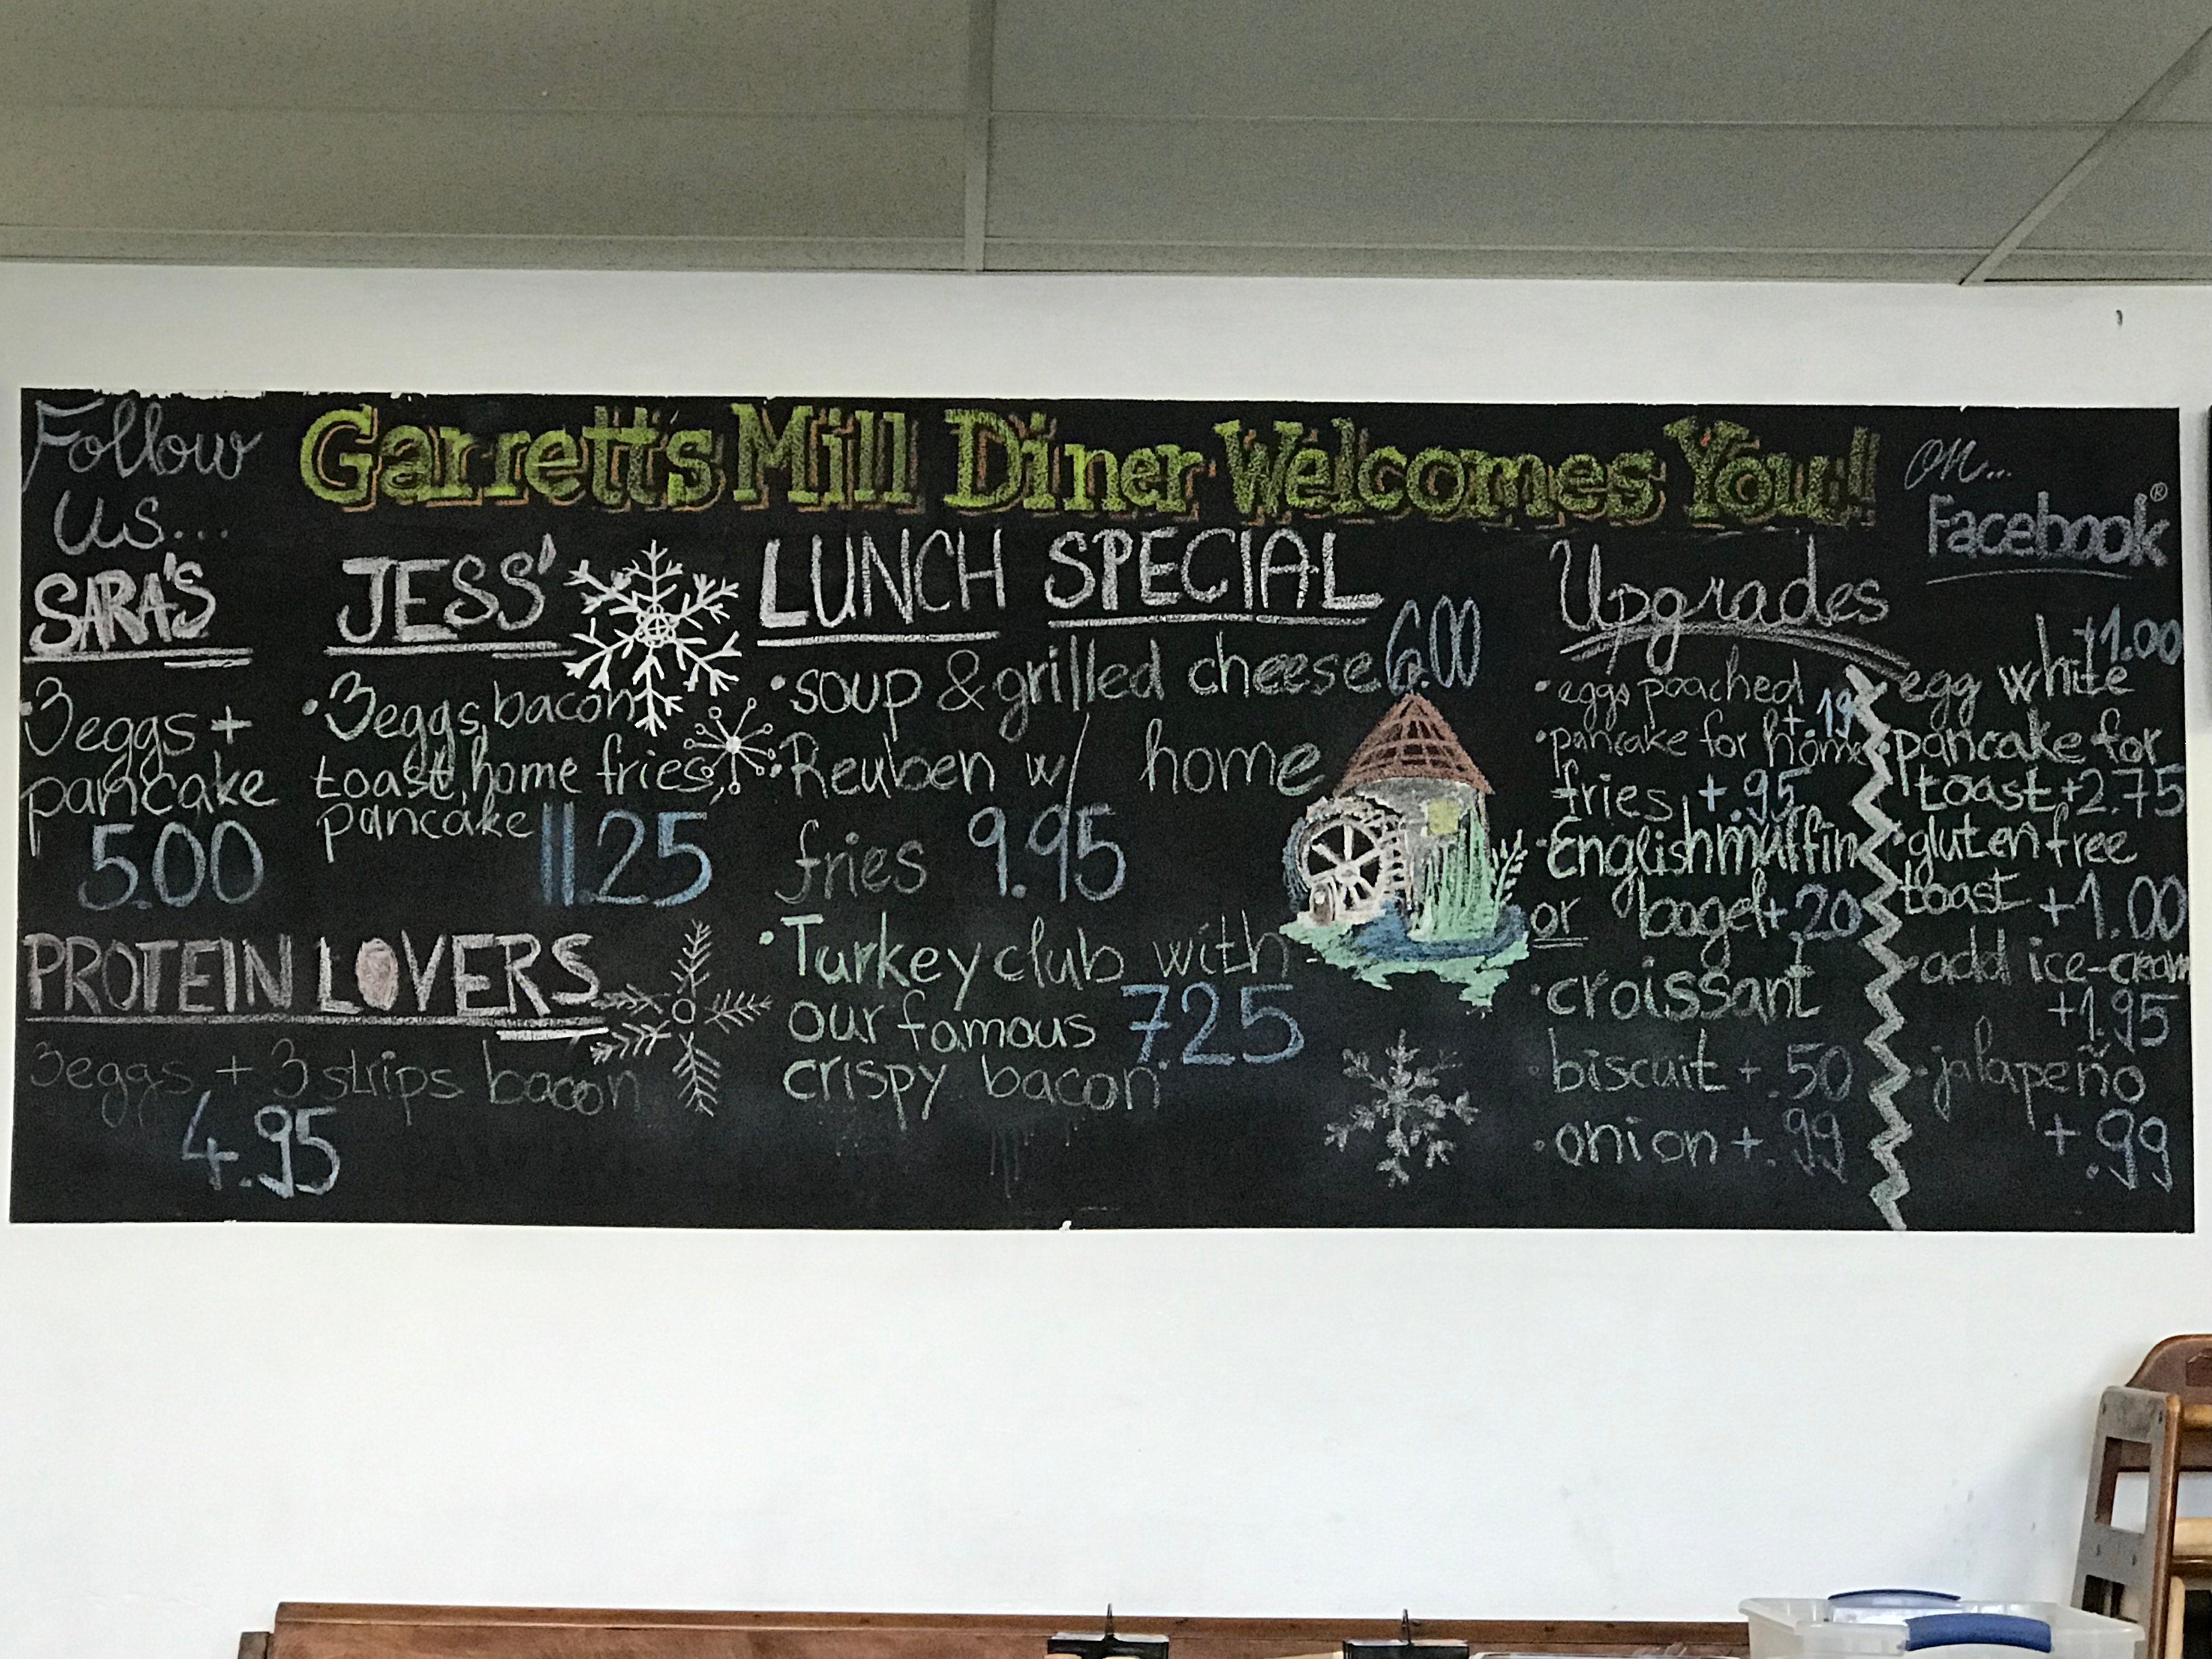 Follow
us...
Garrett's Mill Diner Welcomes You!!
on...
Facebook®
SARA'S
• 3 eggs +
pancake
5.00
JESS'
• 3 eggs, bacon
toast, home fries,
pancake 11.25
PROTEIN LOVERS
3 eggs + 3 strips bacon
4.95
LUNCH SPECIAL
• soup & grilled cheese 6.00
• Reuben w/ home
fries 9.95
• Turkey club with
our famous 7.25
crispy bacon
Upgrades
• eggs poached
+ .19
• pancake for home
fries +.95
• English muffin
or bagel +.20
• croissant
• biscuit +.50
• onion +.99
+1.00
egg white
• pancake for
toast +2.75
• gluten free
toast +1.00
• add ice-cream
+1.95
• jalapeño
+.99